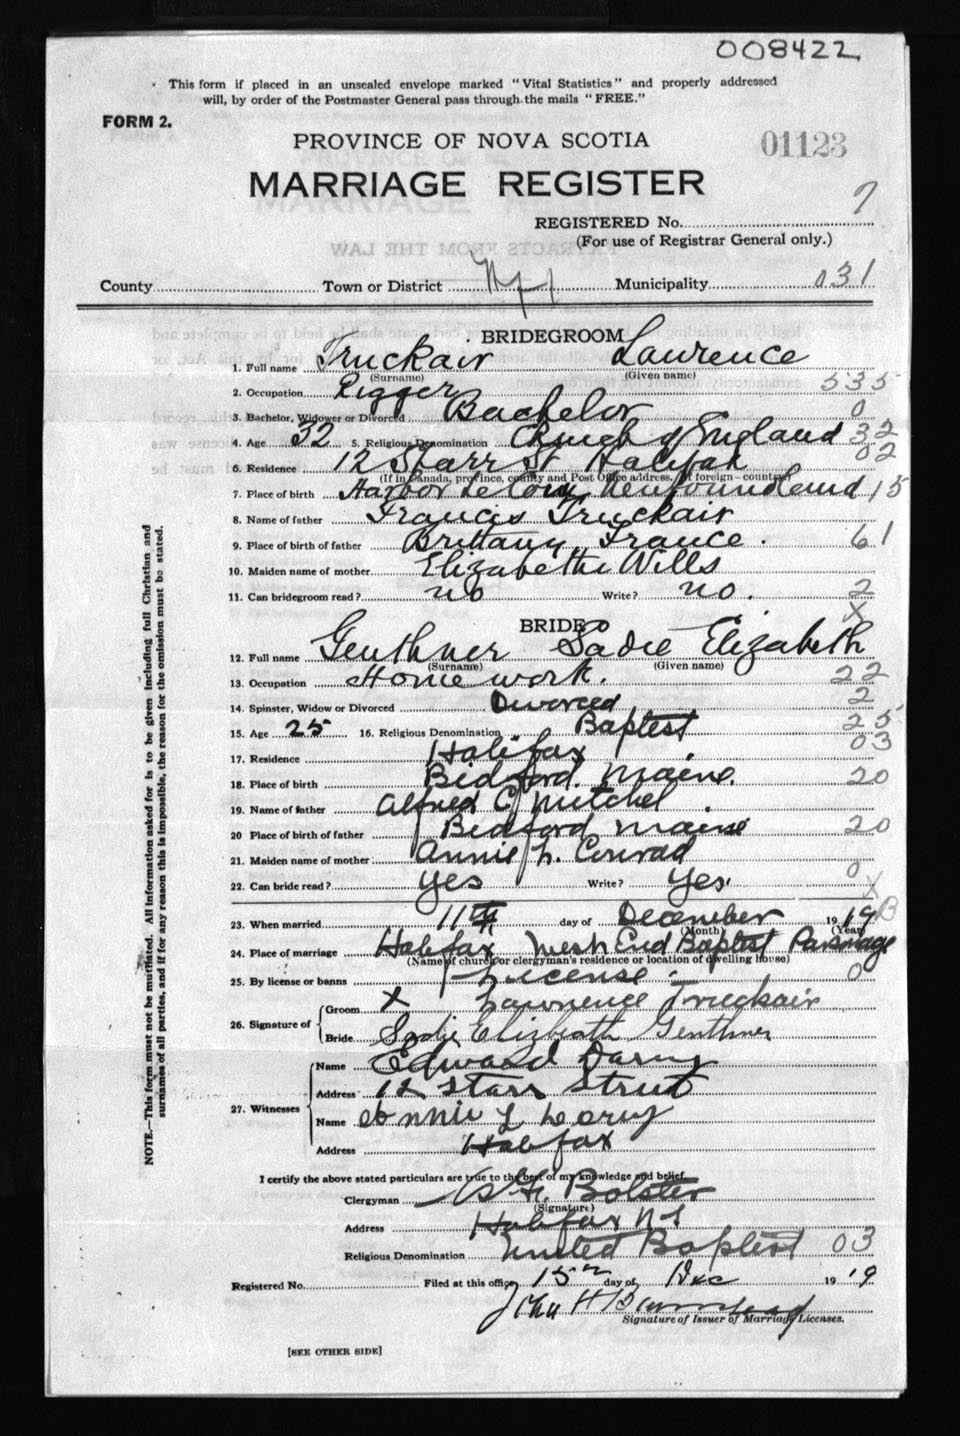 008422
This form if placed in an unsealed envelope marked "Vital Statistics" and properly addressed
will, by order of the Postmaster General pass through the mails "FREE."
FORM 2.
PROVINCE OF NOVA SCOTIA
01123
MARRIAGE REGISTER
REGISTERED No. 7
(For use of Registrar General only.)
County Town or District Municipality 031
BRIDEGROOM
1. Full name Truckair Lawrence
(Surname) (Given name)
2. Occupation Rigger 535
3. Bachelor, Widower or Divorced Bachelor 0
4. Age 32 5. Religious Denomination Church of England 32
6. Residence 12 Starr St Halifax 02
(If in Canada, province, county and Post Office address. If foreign—country)
7. Place of birth Harbor Newfoundland 15
8. Name of father Francis Truckair
9. Place of birth of father Brittany, France. 61
10. Maiden name of mother Elizabeth Wills
11. Can bridegroom read? no Write? no. 2
X
BRIDE
12. Full name Genthner Sadie Elizabeth
(Surname) (Given name)
13. Occupation Home work. 22
14. Spinster, Widow or Divorced Divorced 2
15. Age 25 16. Religious Denomination Baptist 25
17. Residence Halifax 03
18. Place of birth Bidford, Maine. 20
19. Name of father Alfred C Mitchel
20 Place of birth of father Bidford, Maine 20
21. Maiden name of mother Annie L. Conrad
22. Can bride read? Yes Write? Yes. 0
X
23. When married 11th day of December 1919
(Month) (Year)
24. Place of marriage Halifax West End Baptist Parsonage
(Name of church or clergyman's residence or location of dwelling house)
25. By license or banns License. 0
26. Signature of
Groom X Lawrence Truckair
Bride Sadie Elizbeath Genthner
27. Witnesses
Name Edward
Address 12 Starr Street
Name Annie L
Address Halifax
I certify the above stated particulars are true to the best of my knowledge and belief.
Clergyman Bolster
(Signature)
Address Halifax N S
Religious Denomination United Baptist 03
Registered No. Filed at this office 15 day of Dec 1919
Signature of Issuer of Marriage Licenses.
[SEE OTHER SIDE]
NOTE.—This form must not be mutilated. All information asked for is to be given including full Christian and
surnames of all parties, and if for any reason this is impossible, the reason for the omission must be stated.